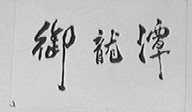 御龍潭